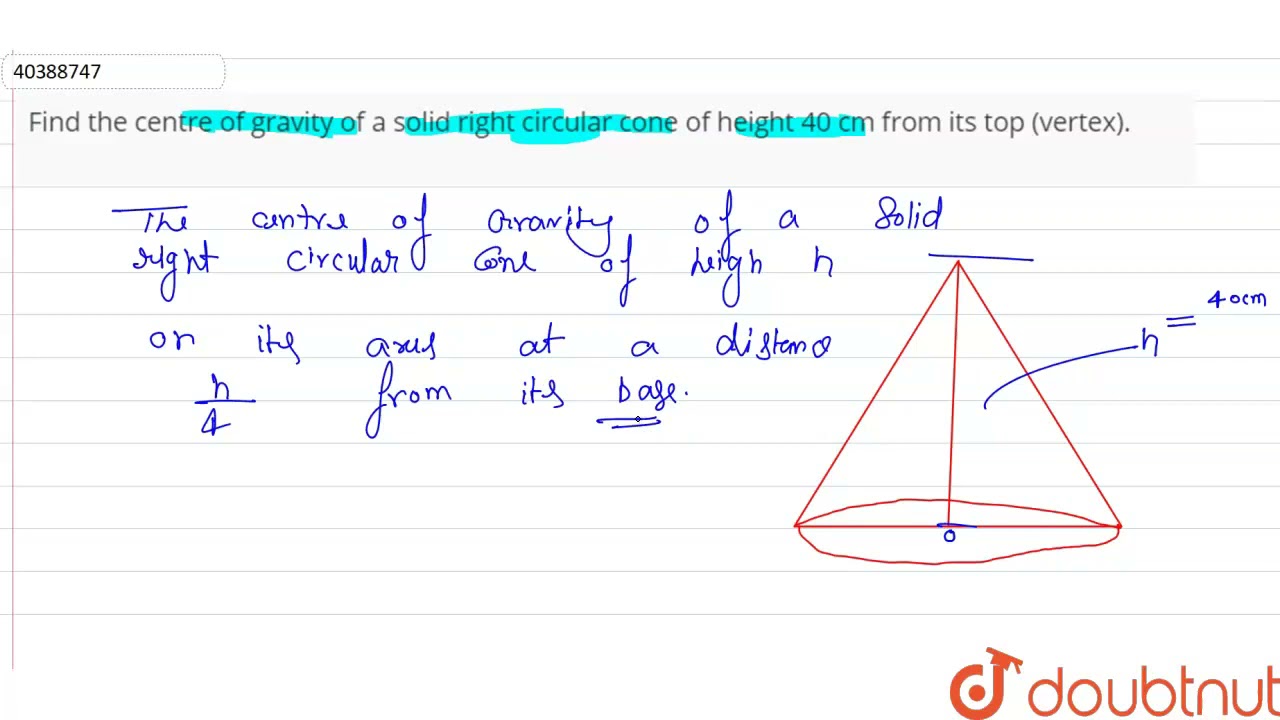 40388747
Find the centre of gravity of a solid right circular cone of height 40 cm from its top (vertex).
The centre of gravity of a solid
right circular cone of heigh h
on its axis at a distance
h/4 from its base.
h = 40cm
O
doubtnut